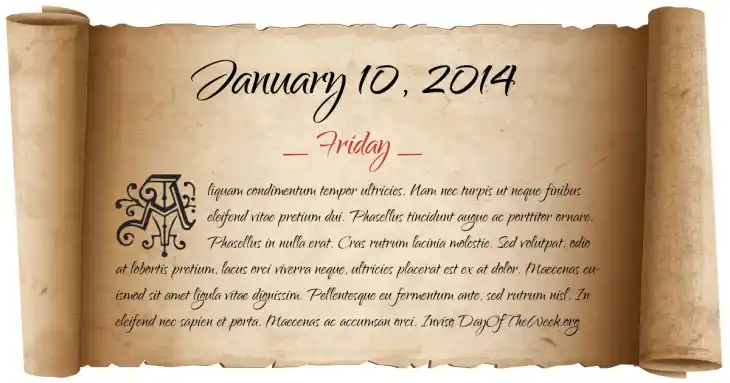 January 10, 2014
— Friday —
Aliquam condimentum tempor ultricies. Nam nec turpis ut neque finibus
eleifend vitae pretium dui. Phasellus tincidunt augue ac porttitor ornare.
Phasellus in nulla erat. Cras rutrum lacinia molestie. Sed volutpat, odio
at lobortis pretium, lacus orci viverra neque, ultricies placerat est ex at dolor. Maecenas eu-
ismod sit amet ligula vitae dignissim. Pellentesque eu fermentum ante, sed rutrum nisl. In
eleifend nec sapien et porta. Maecenas ac accumsan orci. Inviso DayOfTheWeek.org